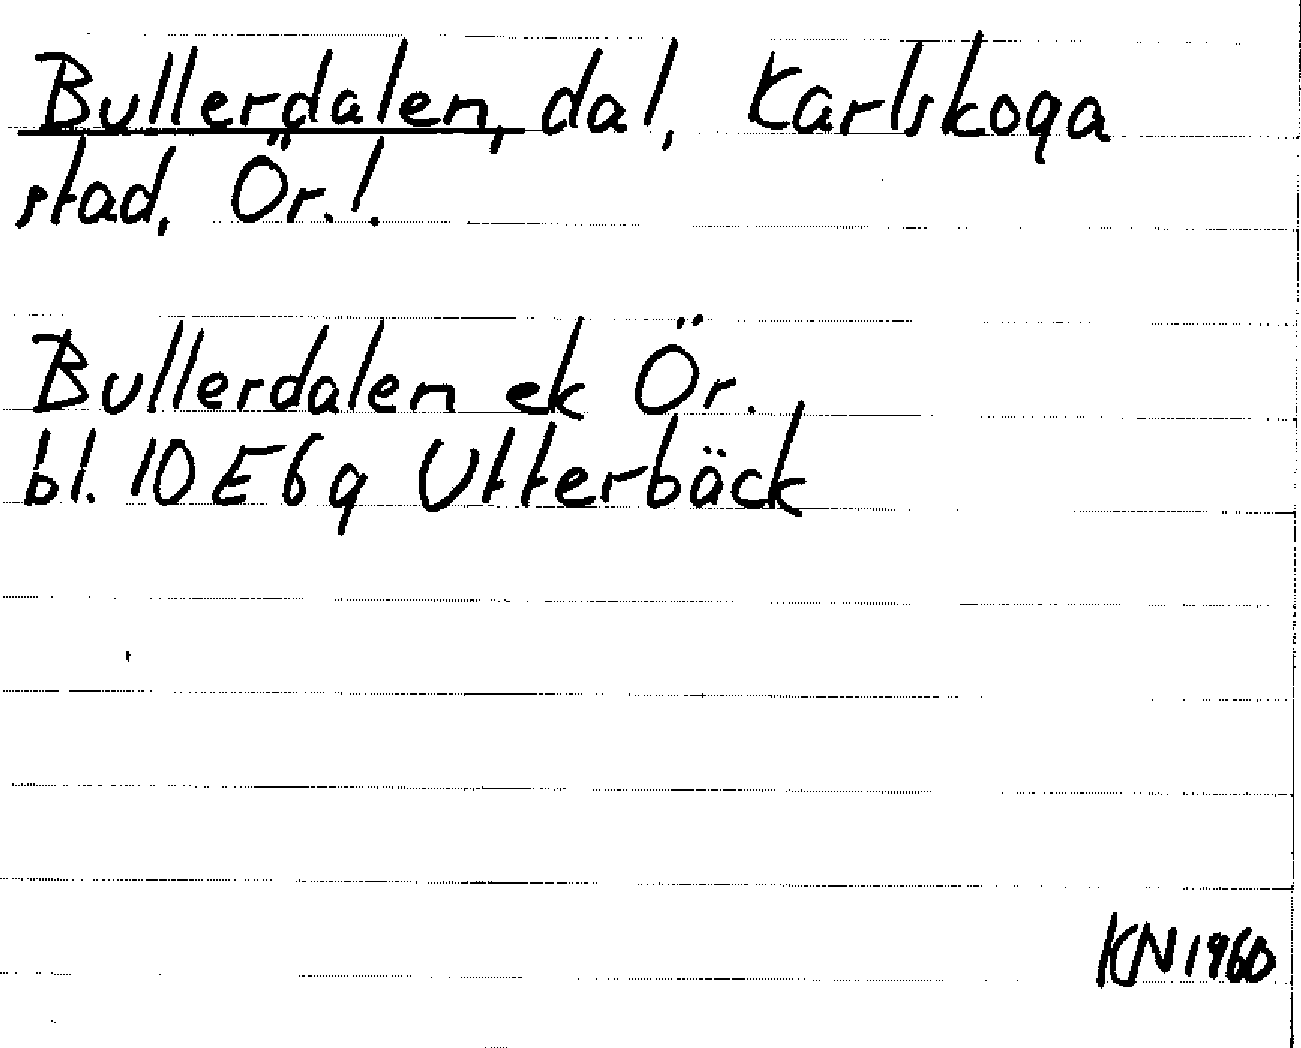 Bullerdalen, dal, Karlskoga
stad, Ör.!.
Bullerdalen ek Ör.
bl. 10E6g Utterbäck
KN1960